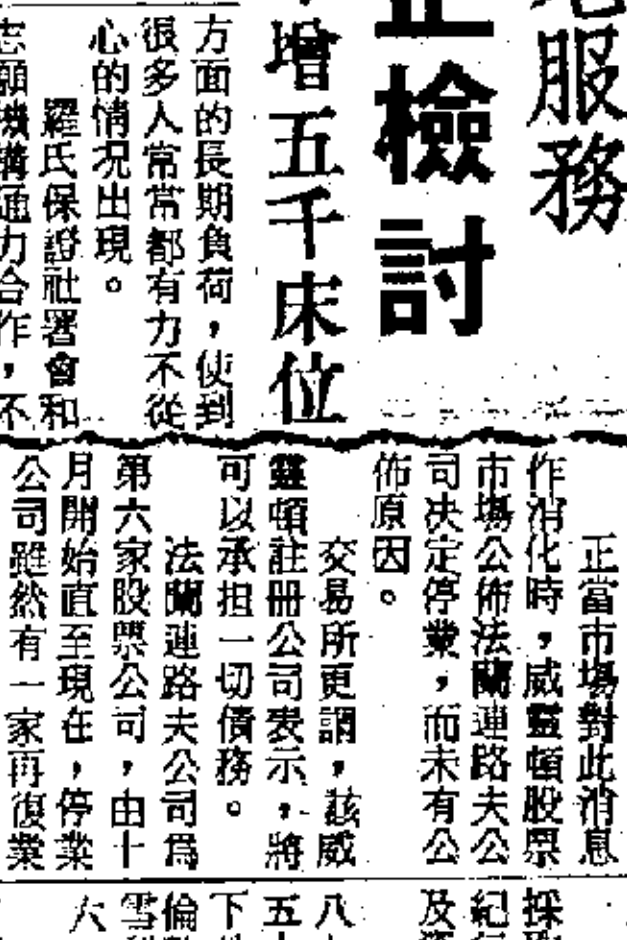 服務
檢討
增五千床位
方面的長期負荷，使到
很多人常常都有力不從
心的情況出現。
羅氏保證社署會和
志願機構通力合作，不
正當市場對此消息
作消化時，威靈頓股票
市場公佈法蘭連路夫公
司決定停業，而未有公
佈原因。
交易所更謂，該威
靈頓註冊公司表示，將
可以承担一切債務。
法蘭連路夫公司爲
第六家股票公司，由十
月開始直至現在，停業
公司雖然有一家再復業
採
紀
及
八
五
下
倫
雪
六